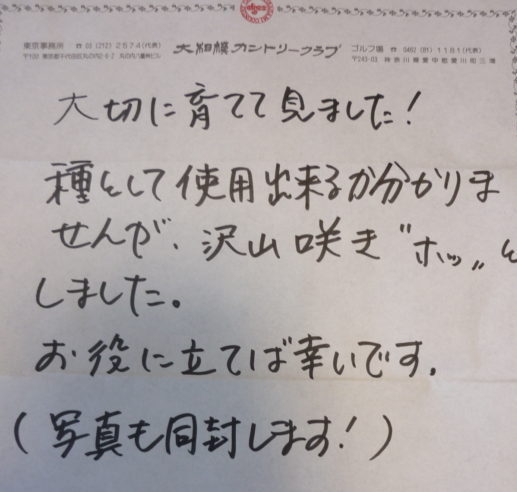 東京事務所 ☎ 03 (212) 2574 (代表)
〒100 東京都千代田区丸の内2-6-2 丸の内八重洲ビル
大相模カントリークラブ
ゴルフ場 ☎ 0462 (81) 1181 (代表)
〒243-03 神奈川県愛甲郡愛川町三増
大切に育てて見ました!
種として使用出来るか分かりま
せんが、沢山咲き"ホッ"と
しました。
お役に立てば幸いです。
(写真も同封します!)